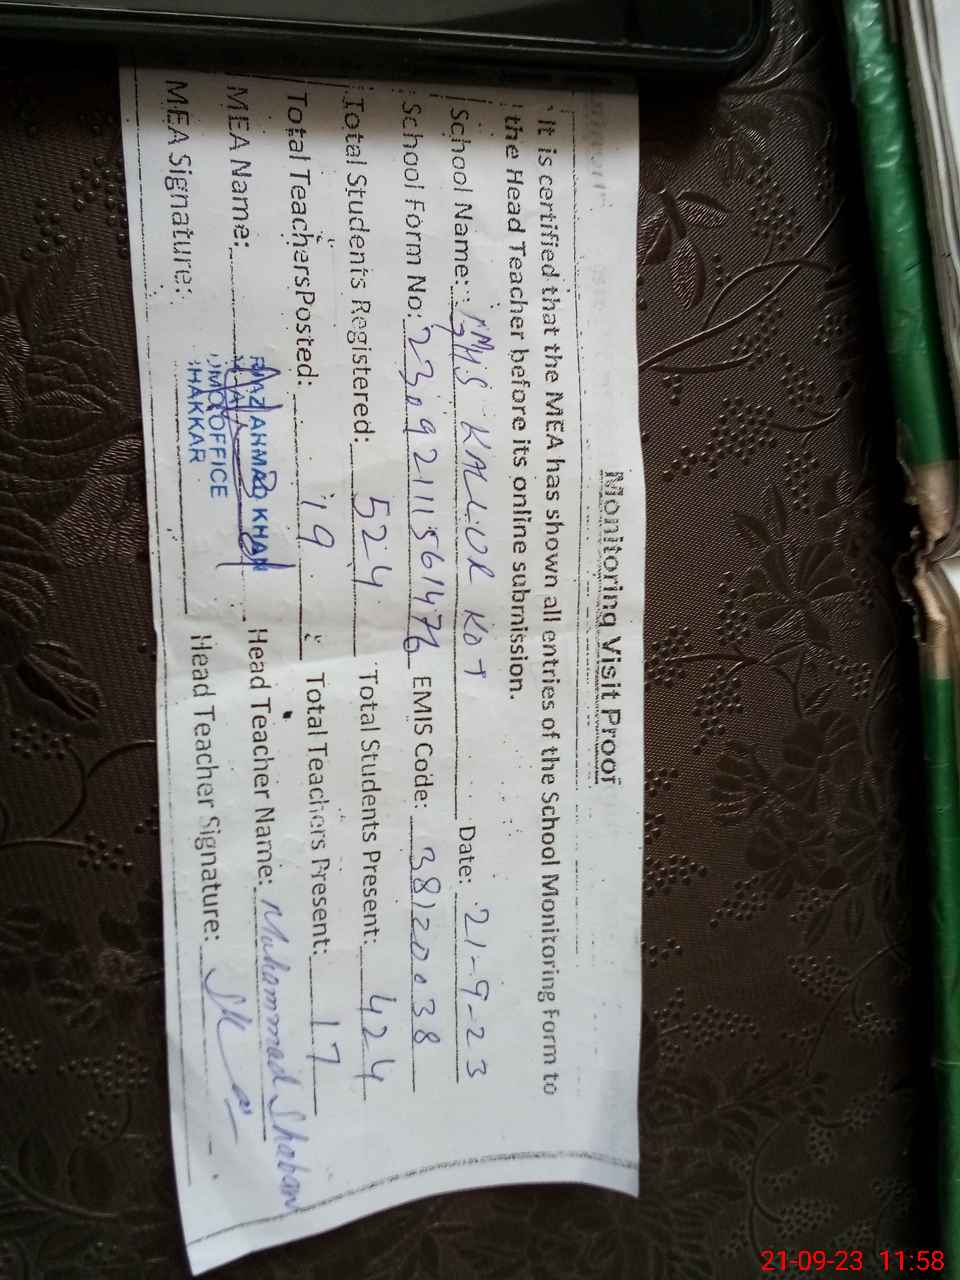 Monitoring Visit Proof
It is certified that the MEA has shown all entries of the School Monitoring Form to
the Head Teacher before its online submission.
School Name: KALLUR KOT Date: 21-9-23
School Form No: EMIS Code: 38120038
Total Students Registered: 524 Total Students Present: 424
Total Teachers Posted: 19 Total Teachers Present: 17
MEA Name: AHMAD KHAN Head Teacher Name: Muhammad Shaban
OFFICE
MEA Signature: Head Teacher Signature:
21-09-23 11:58